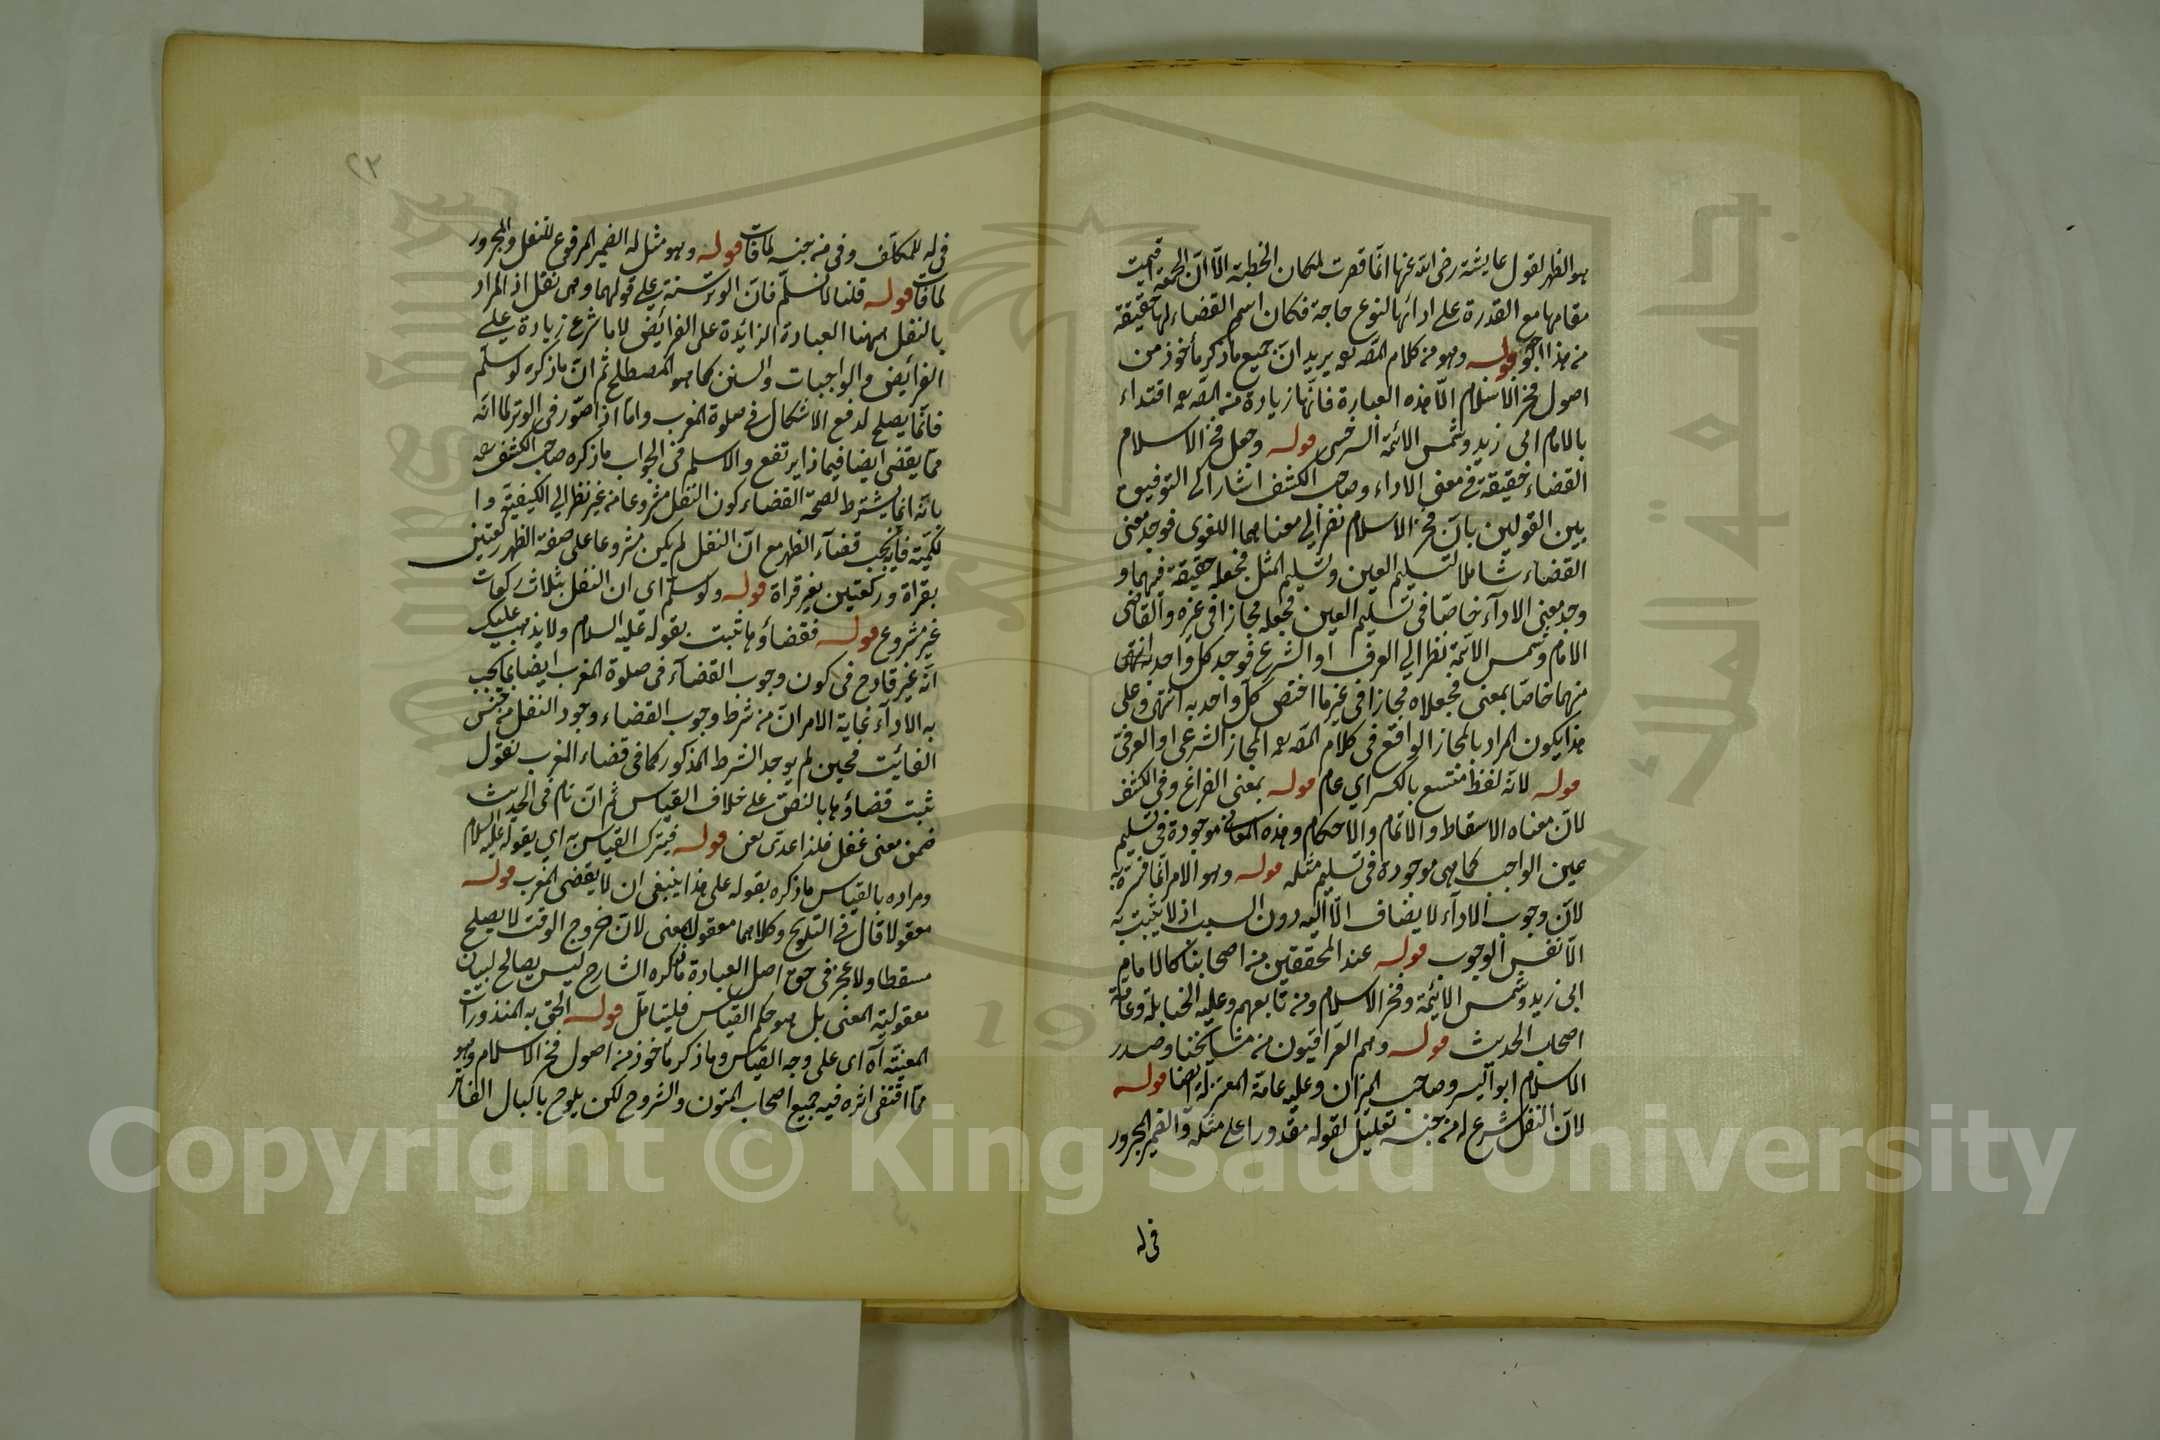 هو الظهر لقول عايشة رضى الله عنها انما قصرت لمكان الخطبة الّا انّ الجمعة اقيمت
مقامها مع القدرة على ادائها لنوع حاجة فكان اسم القضاء لها حقيقة
من هذا قوله وهو من كلام المصّ يريد انّ جميع ما ذكر مأخوذ من
اصول فخر الاسلام الّا هذه العبارة فانّها زيادة من المصّ اقتداء
بالامام ابى زيد وشمس الائمة السرخسى قوله وجعل فخر الاسلام
القضاء حقيقة فى معنى الاداء وصاحب الكشف اشار الى التوفيق
بين القولين بانّ فخر الاسلام نظر الى معناهما اللغوى فوجد معنى
القضاء شاملا لتسليم العين وتسليم المثل فجعله حقيقة فيهما و
وجد معنى الاداء خاصّا فى تسليم العين فجعله مجازا فى غيره والقاضى
الامام وشمس الائمة نظرا الى العرف او الشرع فوجدا كل واحد
منهما خاصّا بمعنى فجعلاه مجازا فى غير ما اختصّ كلّ واحد به انتهى وعلى
هذا يكون المراد بالمجاز الواقع فى كلام المصّ المجاز الشرعى او العرفى
قوله لانّه لفظ متسع بالكسر اى عام قوله بمعنى الفراغ وفى الكشف
لانّ معناه الاسقاط والاتمام والاحكام وهذه المعانى موجودة فى تسليم
عين الواجب كما هى موجودة فى تسليم مثله قوله وهو الامر انّما فسّره به
لانّ وجوب الاداء لا يضاف الّا اليه دون السبب اذ لا يثبت به
الّا نفس الوجوب قوله عند المحققين من اصحابنا كالامام
ابى زيد وشمس الائمة وفخر الاسلام ومن تابعهم وعليه الحنابلة وعامّة
اصحاب الحديث قوله وهم العراقيون من مشايخنا وصدر
الاسلام ابو اليسر وصاحب الميزان وعليه عامّة المعتزلة ايضا قوله
لانّ النفل شرع له من جنسه تعليل لقوله مقدورا على مثله والضمير المجرور
فى له
٢٣
فى له للمكلّف وفى من جنسه لما فات قوله وهو مثل له الضمير المرفوع للنفل والمجرور
لما فات قوله قلنا لا نسلّم فانّ الوتر سنة على قولهما وهى نفل اذ المراد
بالنفل ههنا العبادة الزائدة على الفرائض لا ما شرع زيادة على
الفرائض والواجبات والسنن كما هو المصطلح ثم انّ ما ذكره لو سلّم
فانّما يصلح لدفع الاشكال فى صلوة المغرب وامّا اذا صوّر فى الوتر لما انّه
ممّا يقضى ايضا فبماذا يرتفع والاسلم فى الجواب ما ذكره صاحب الكشف
بانّه انّما يشترط لصحة القضاء كون النفل مشروعا من غير نظر الى الكيفية وا
لكميّة فانّه يجب قضاء الظهر مع انّ النفل لم يكن مشروعا على صفة الظهر ركعتين
بقراة وركعتين بغير قراة قوله ولو سلّم اى ان النفل بثلاث ركعات
غير مشروع قوله فقضاؤها ثبت بقوله عليه السلام ولا يذهب عليك
انّه غير قادح فى كون وجوب القضاء فى صلوة المغرب ايضا بما يجب
به الاداء غاية الامر انّ من شرط وجوب القضاء وجود النفل من جنس
الفائت فحين لم يوجد الشرط المذكور كما فى قضاء المغرب نقول
ثبت قضاؤها بالنصّ على خلاف القياس ثم انّ نام فى الحديث
ضمن معنى غفل فلذا عدى بعن قوله فيترك القياس به اى بقوله عليه السلام
ومراده بالقياس ما ذكره بقوله على هذا ينبغى ان لا يقضى المغرب قوله
معقولا قال فى التلويح وكلاهما معقول المعنى لانّ خروج الوقت لا يصلح
مسقطا ولا عجز فى حق اصل العبادة ما ذكره الشارح ليس بصالح لبيان
معقولية المعنى بل هو حكم القياس فليتأمل قوله الحق به المنذورات
المعيّنة آه اى على وجه القياس وما ذكر مأخوذ من اصول فخر الاسلام وهو
ممّا اقتفى اثره فيه جميع اصحاب المتون والشروح لكن يلوح بالبال الفاتر
جامعة الملك سعود
King Saud University
19
Copyright © King Saud University